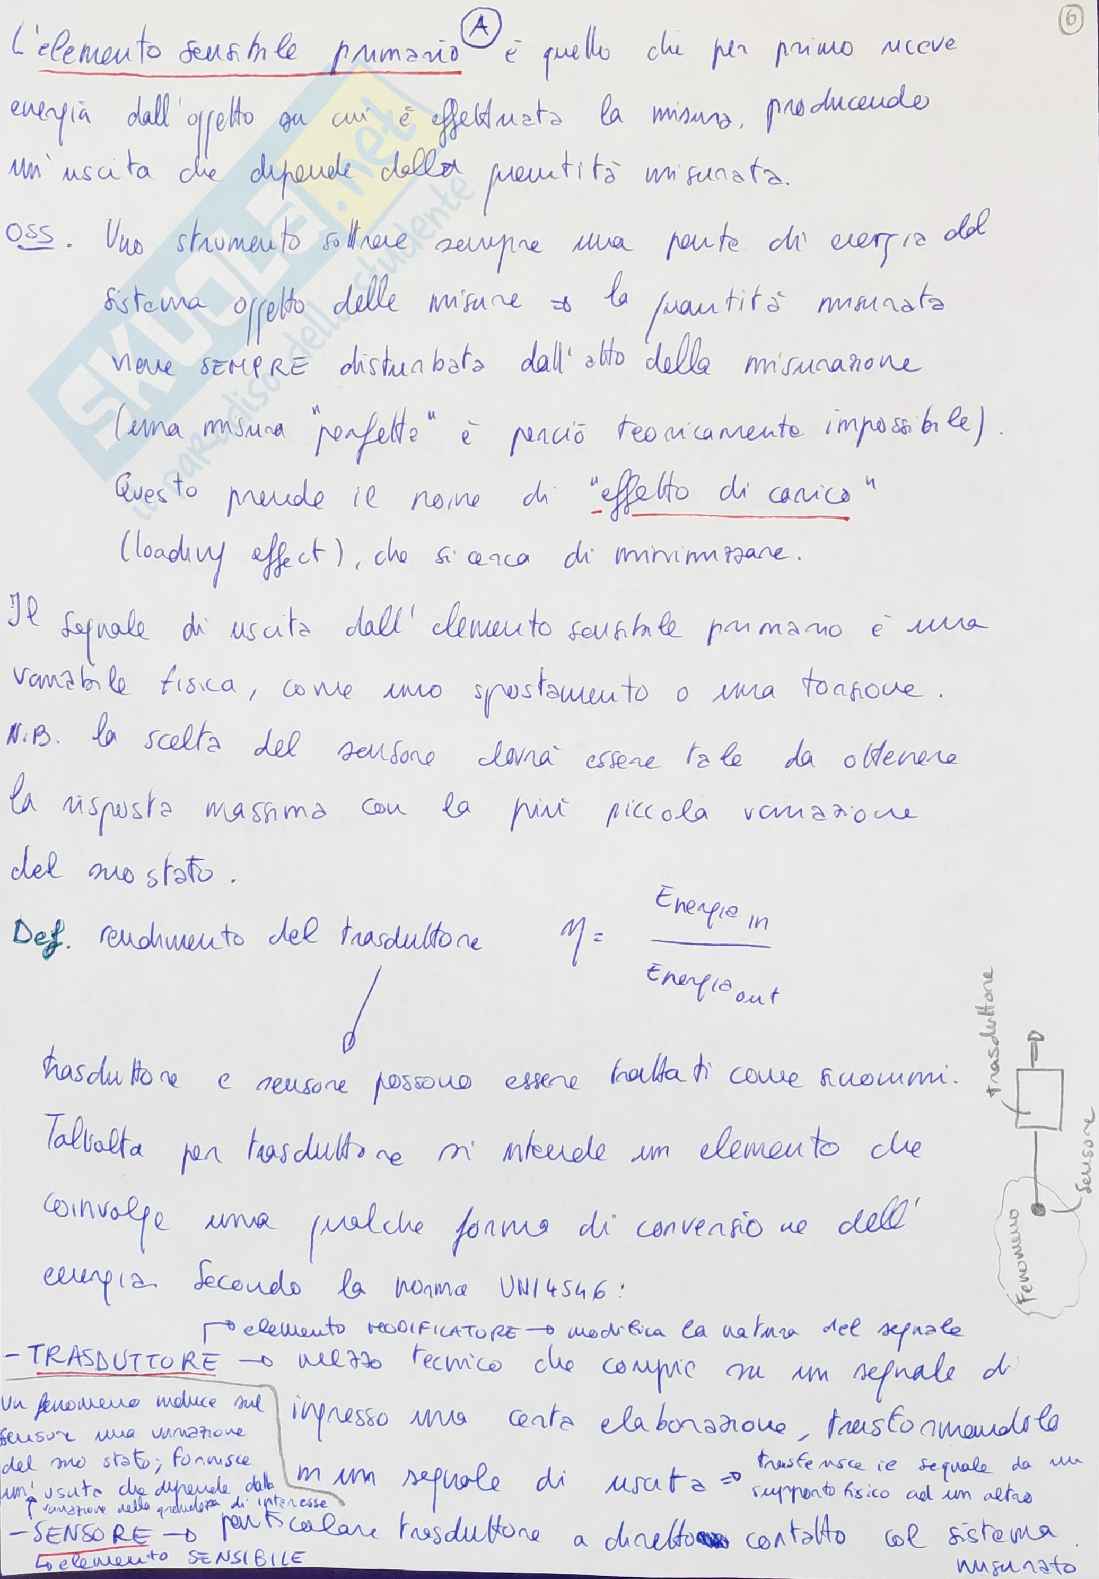 6
L'elemento sensibile primario (A) è quello che per primo riceve
energia dall'oggetto su cui è effettuata la misura, producendo
un'uscita che dipende dalla quantità misurata.
OSS. Uno strumento sottrae sempre una parte di energia dal
sistema oggetto delle misure ⇒ la quantità misurata
viene SEMPRE disturbata dall'atto della misurazione
(una misura "perfetta" è perciò teoricamente impossibile).
Questo prende il nome di "effetto di carico"
(loading effect), che si cerca di minimizzare.
Il segnale di uscita dall'elemento sensibile primario è una
variabile fisica, come uno spostamento o una torsione.
N.B. la scelta del sensore dovrà essere tale da ottenere
la risposta massima con la più piccola variazione
del suo stato.
Def. rendimento del trasduttore η = Energia in / Energia out
trasduttore e sensore possono essere trattati come sinonimi.
Talvolta per trasduttore si intende un elemento che
coinvolge una qualche forma di conversione dell'
energia. Secondo la norma UNI4546:
trasduttore
sensore
Fenomeno
→ elemento MODIFICATORE → modifica la natura del segnale
- TRASDUTTORE → mezzo tecnico che compie su un segnale di
ingresso una certa elaborazione, trasformandolo
in un segnale di uscita ⇒ trasferisce il segnale da un
supporto fisico ad un altro
un fenomeno induce sul
sensore una variazione
del suo stato; fornisce
un'uscita che dipende dalla
variazione della grandezza di interesse
- SENSORE → particolare trasduttore a diretto contatto col sistema
misurato
↳ elemento SENSIBILE
SKUOLA.net
il paradiso dello studente